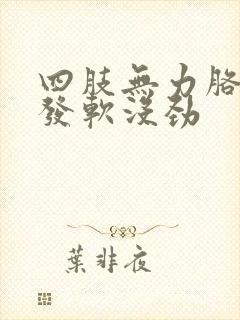 四肢無力胳
發軟沒勁
葉非夜